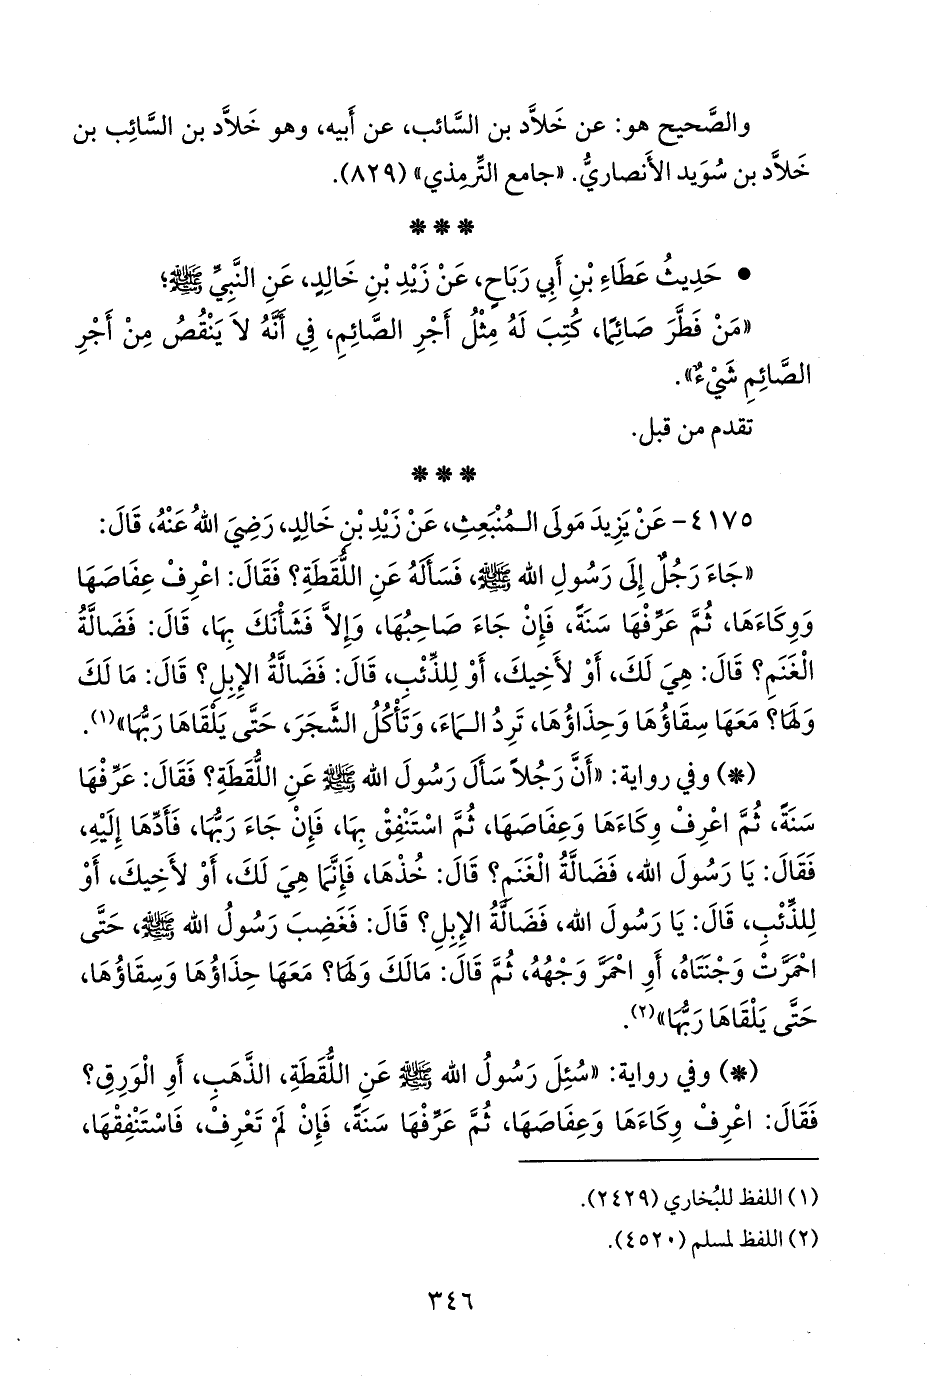 والصَّحيح هو: عن خَلاَّد بن السَّائب، عن أَبيه، وهو خَلاَّد بن السَّائِب بن
خَلاَّد بن سُوَيد الأَنصاريُّ. «جامع التِّرمِذي» (٨٢٩).
* * *
• حَدِيثُ عَطَاءِ بْنِ أَبِي رَبَاحٍ، عَنْ زَيْدِ بْنِ خَالِدٍ، عَنِ النَّبِيِّ ﷺ؛
«مَنْ فَطَّرَ صَائِمًا، كُتِبَ لَهُ مِثْلُ أَجْرِ الصَّائِمِ، فِي أَنَّهُ لاَ يَنْقُصُ مِنْ أَجْرِ
الصَّائِمِ شَيْءٌ».
تقدم من قبل.
* * *
٤١٧٥- عَنْ يَزِيدَ مَولَى الـمُنْبَعِثِ، عَنْ زَيْدِ بْنِ خَالِدٍ، رَضِيَ اللهُ عَنْهُ، قَالَ:
«جَاءَ رَجُلٌ إِلَى رَسُولِ الله ﷺ، فَسَأَلَهُ عَنِ اللُّقَطَةِ؟ فَقَالَ: اعْرِفْ عِفَاصَهَا
وَوِكَاءَهَا، ثُمَّ عَرِّفْهَا سَنَةً، فَإِنْ جَاءَ صَاحِبُهَا، وَإِلاَّ فَشَأْنَكَ بِهَا، قَالَ: فَضَالَّةُ
الْغَنَمِ؟ قَالَ: هِيَ لَكَ، أَوْ لأَخِيكَ، أَوْ لِلذِّئْبِ، قَالَ: فَضَالَّةُ الإِبِلِ؟ قَالَ: مَا لَكَ
وَلَهَا؟ مَعَهَا سِقَاؤُهَا وَحِذَاؤُهَا، تَرِدُ الـمَاءَ، وَتَأْكُلُ الشَّجَرَ، حَتَّى يَلْقَاهَا رَبُّهَا»(١).
(*) وفي رواية: «أَنَّ رَجُلاً سَأَلَ رَسُولَ الله ﷺ عَنِ اللُّقَطَةِ؟ فَقَالَ: عَرِّفْهَا
سَنَةً، ثُمَّ اعْرِفْ وِكَاءَهَا وَعِفَاصَهَا، ثُمَّ اسْتَنْفِقْ بِهَا، فَإِنْ جَاءَ رَبُّهَا، فَأَدِّهَا إِلَيْهِ،
فَقَالَ: يَا رَسُولَ الله، فَضَالَّةُ الْغَنَمِ؟ قَالَ: خُذْهَا، فَإِنَّمَا هِيَ لَكَ، أَوْ لأَخِيكَ، أَوْ
لِلذِّئْبِ، قَالَ: يَا رَسُولَ الله، فَضَالَّةُ الإِبِلِ؟ قَالَ: فَغَضِبَ رَسُولُ الله ﷺ، حَتَّى
احْمَرَّتْ وَجْنَتَاهُ، أَوِ احْمَرَّ وَجْهُهُ، ثُمَّ قَالَ: مَالَكَ وَلَهَا؟ مَعَهَا حِذَاؤُهَا وَسِقَاؤُهَا،
حَتَّى يَلْقَاهَا رَبُّهَا»(٢).
(*) وفي رواية: «سُئِلَ رَسُولُ الله ﷺ عَنِ اللُّقَطَةِ، الذَّهَبِ، أَوِ الْوَرِقِ؟
فَقَالَ: اعْرِفْ وِكَاءَهَا وَعِفَاصَهَا، ثُمَّ عَرِّفْهَا سَنَةً، فَإِنْ لَمْ تَعْرِفْ، فَاسْتَنْفِقْهَا،
(١) اللفظ للبُخاري (٢٤٢٩).
(٢) اللفظ لمسلم (٤٥٢٠).
٣٤٦